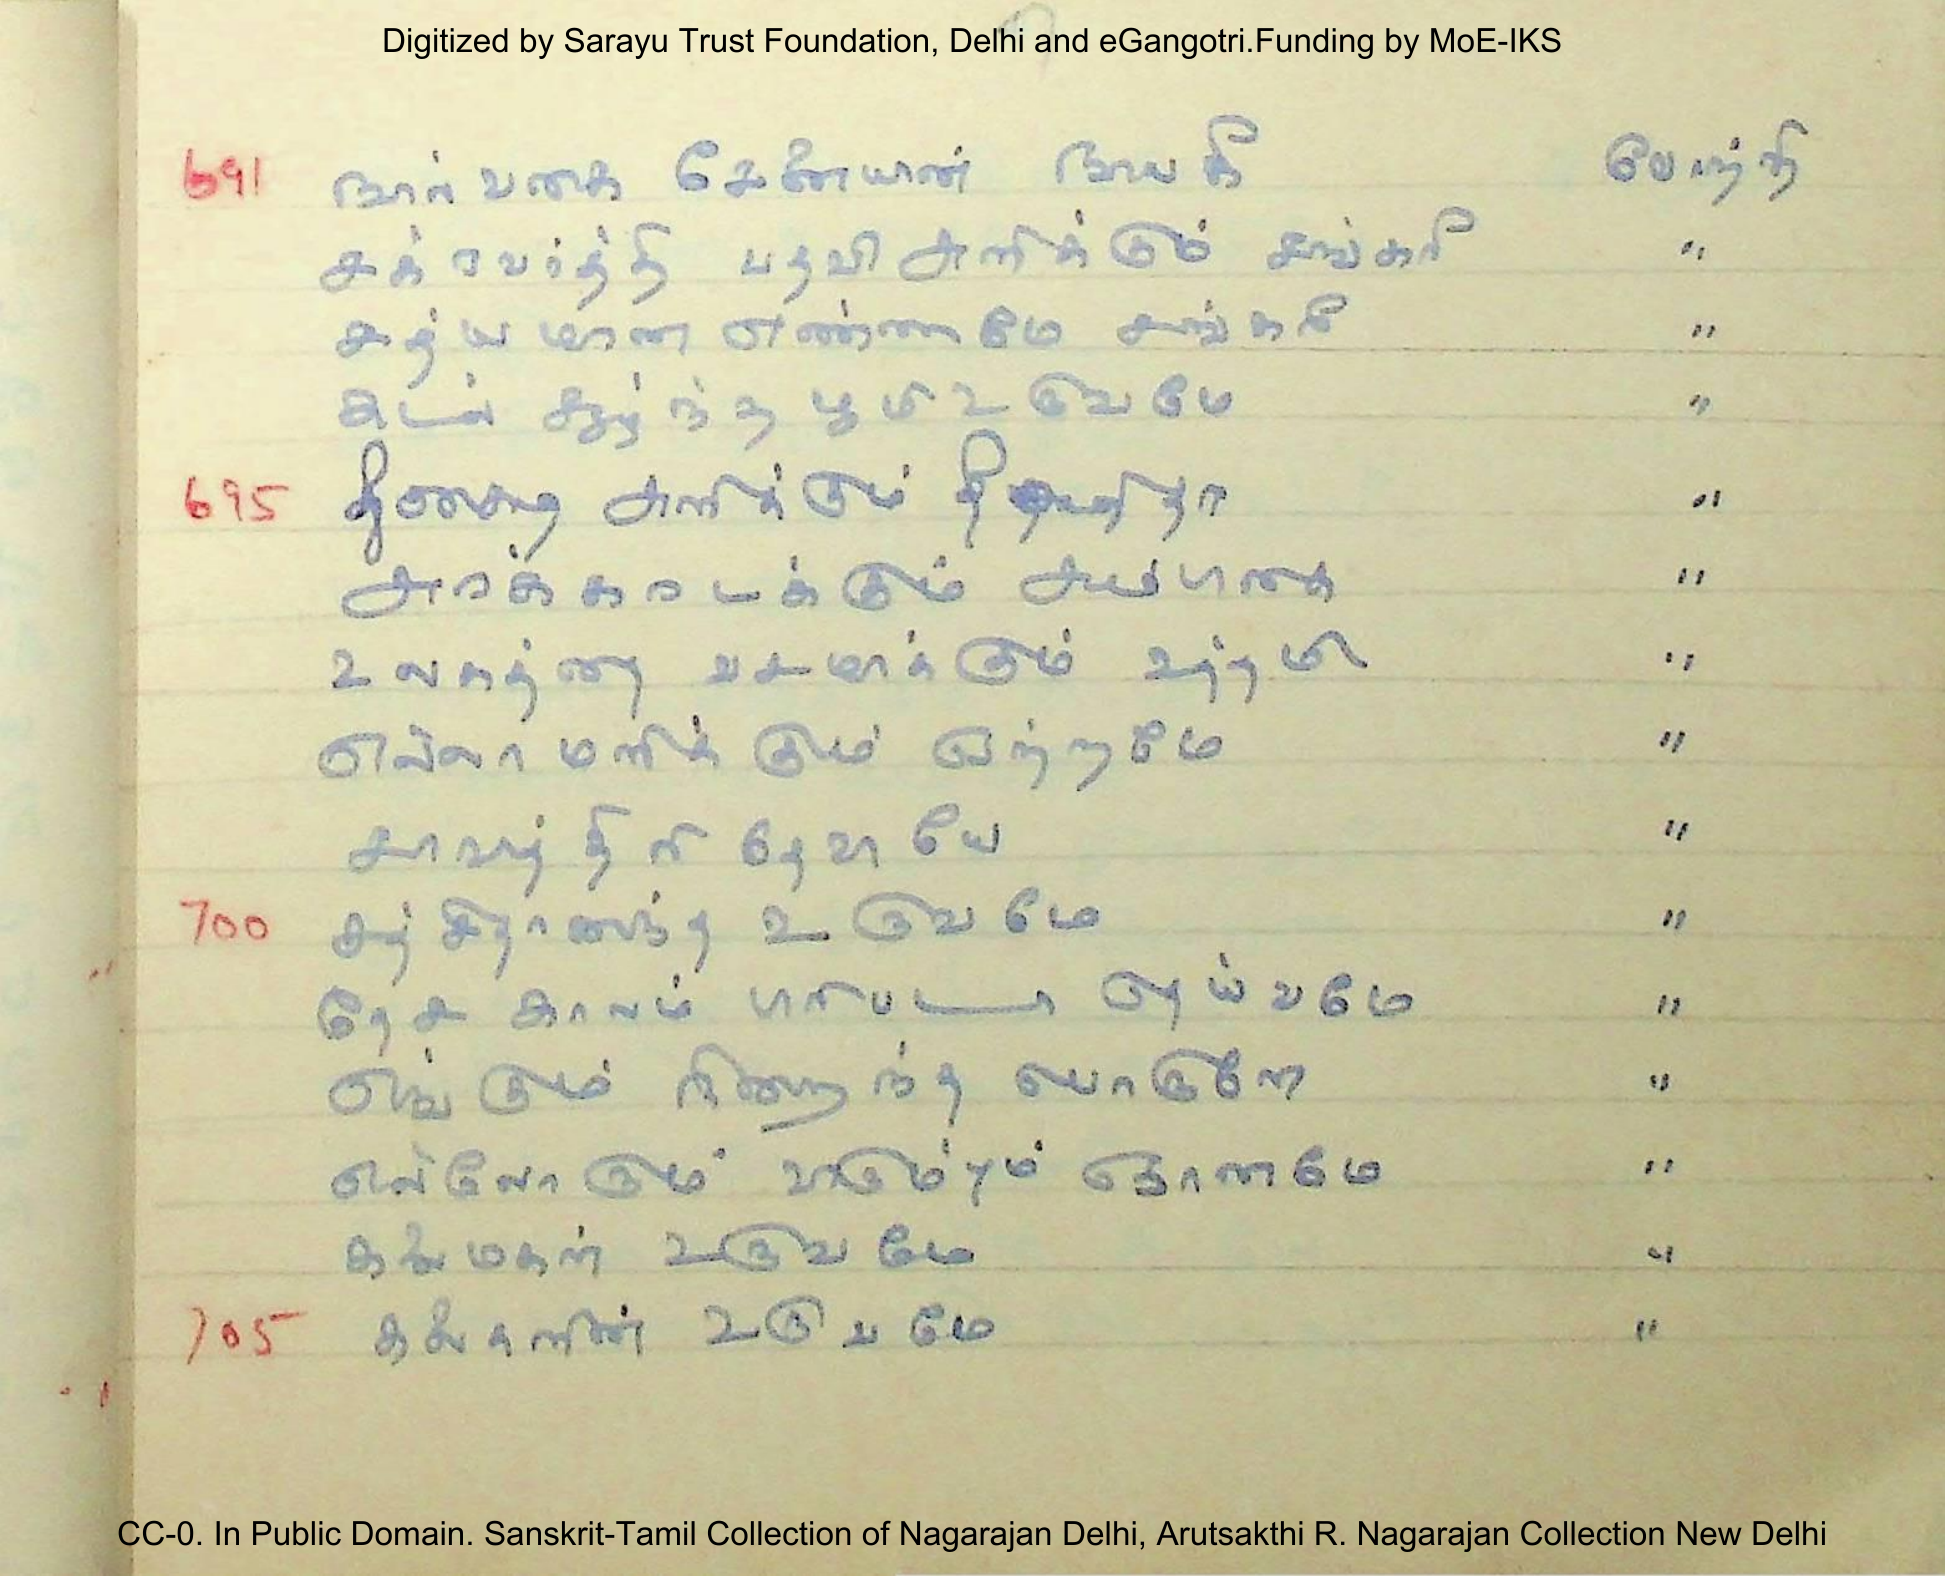 Digitized by Sarayu Trust Foundation, Delhi and eGangotri.Funding by MoE-IKS
691 நால் வகை சேனையாள் நாயகி போற்றி
சக்ரவர்த்தி பதவி அளிக்கும் சங்கரி "
சத்யமான எண்ணமே "
கடல் சூழ்ந்த பூமி உருவமே "
695 தீணையை அளிக்கும் "
"
உலகத்தை வசமாக்கும் உத்தமி "
எல்லாமளிக்கும் ஏற்றமே "
சாவித்திரி தேவியே "
700 சத் சிதானந்த உருவமே "
தேச காலம் தெய்வமே "
எங்கும் நிறைந்த பொருளே "
எல்லோரும் விரும்பும் ஞானமே "
கலைமகள் உருவமே "
705 கலைகளின் உருவமே "
CC-0. In Public Domain. Sanskrit-Tamil Collection of Nagarajan Delhi, Arutsakthi R. Nagarajan Collection New Delhi